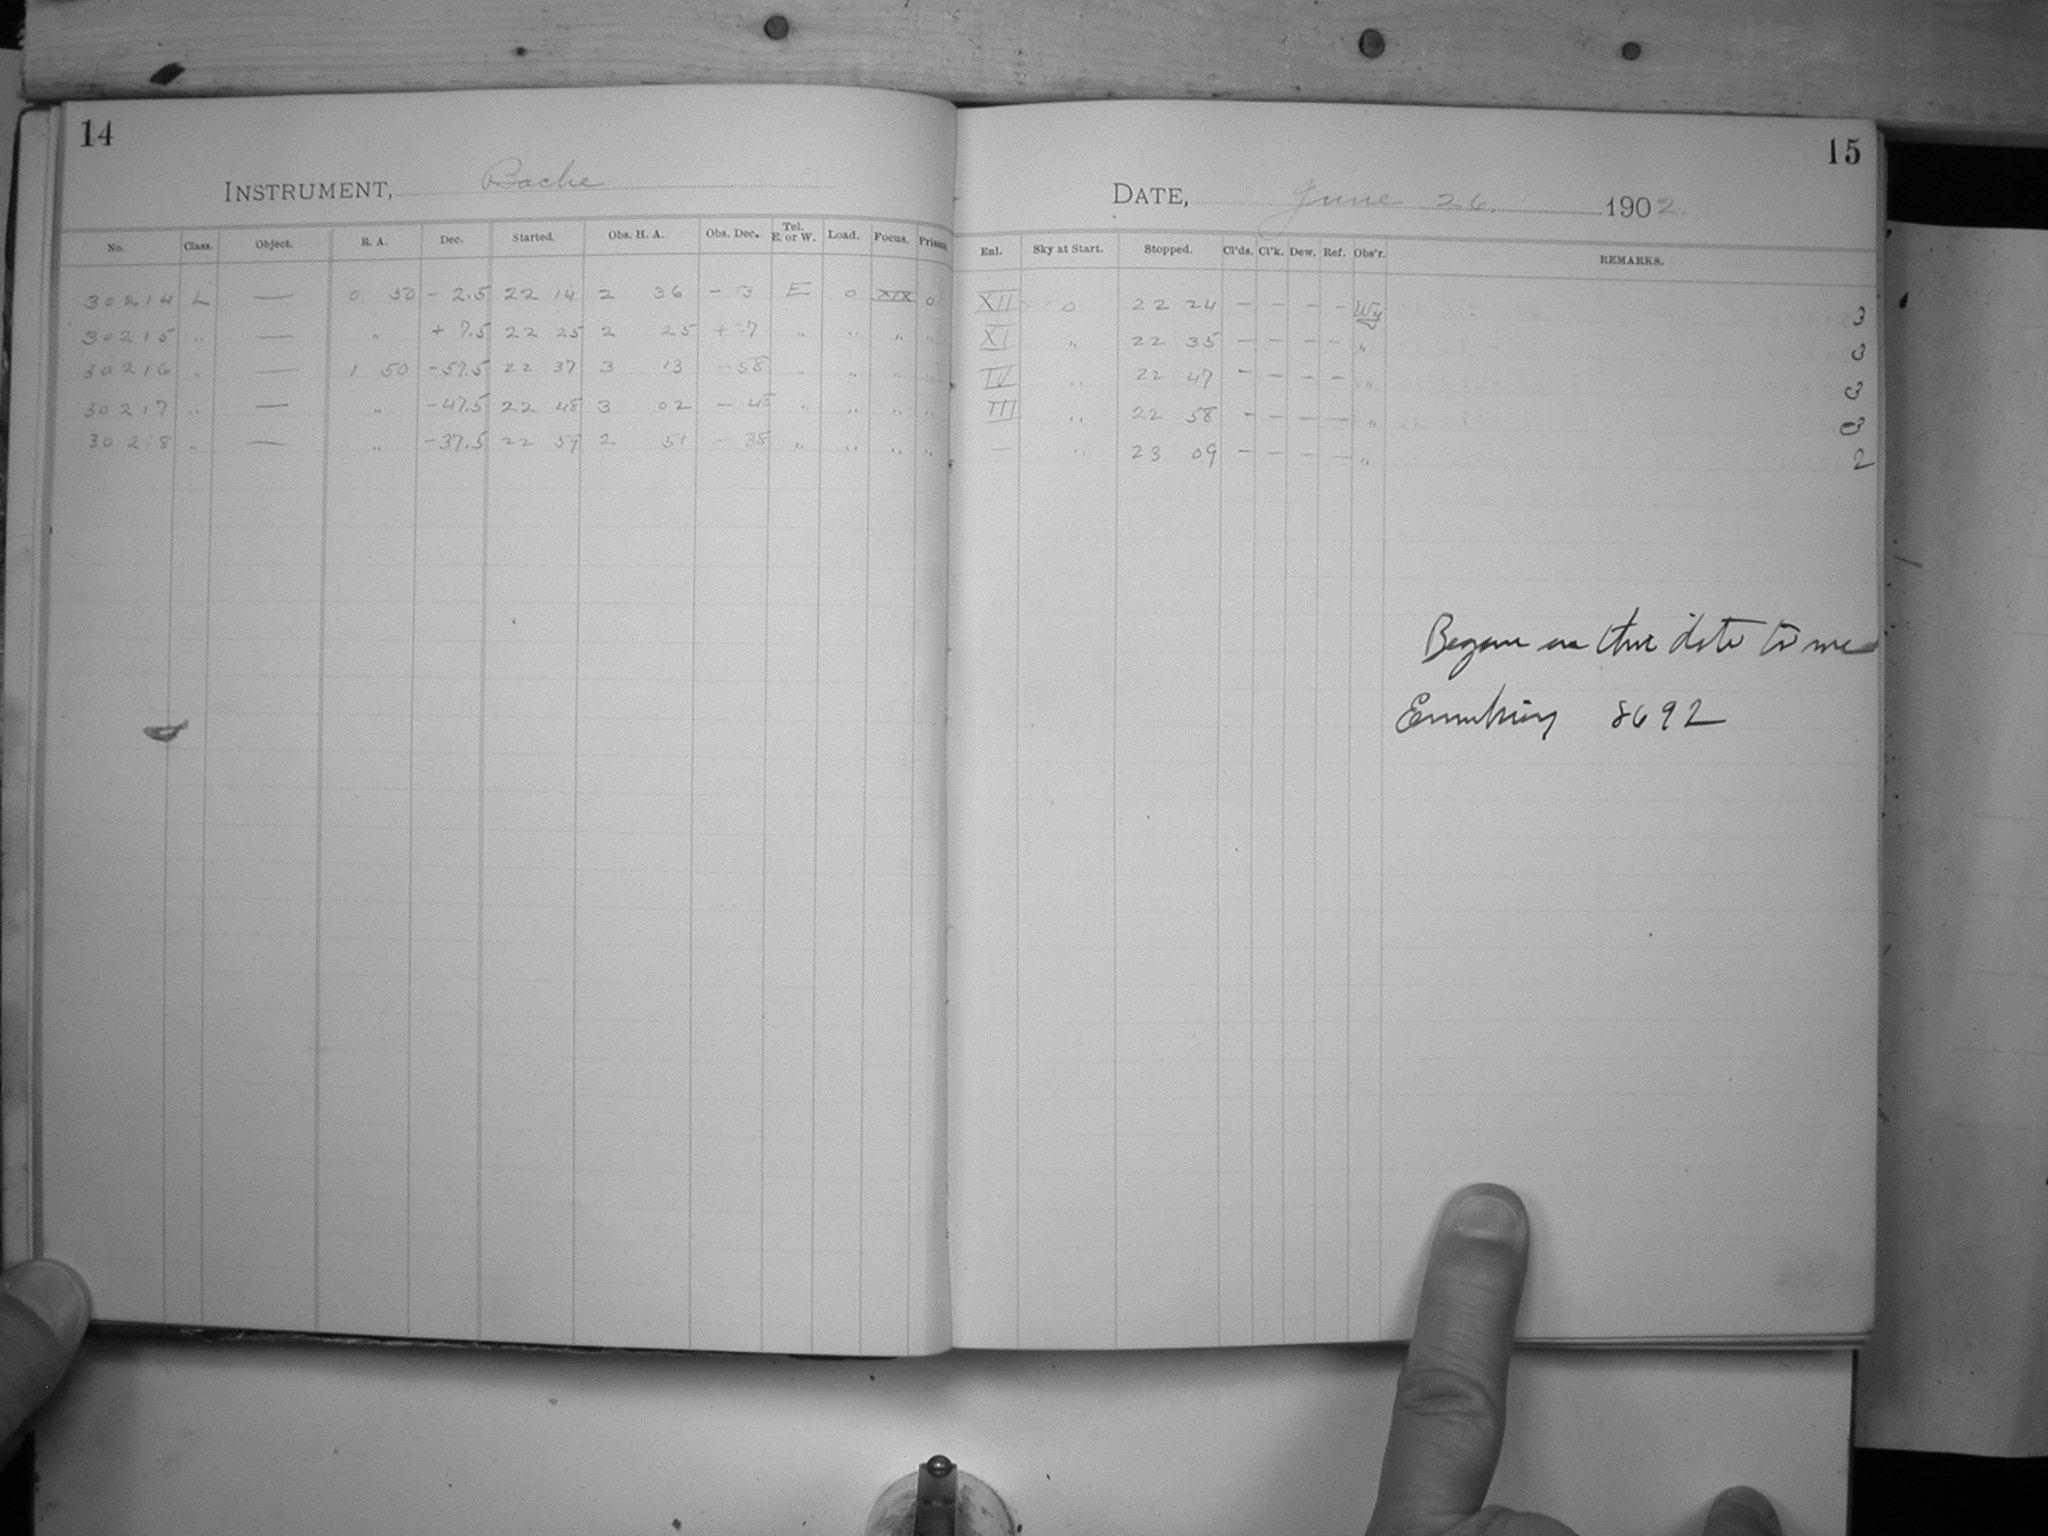 14
INSTRUMENT, Bache
No. Class. Object. R. A. Dec. Started. Obs. H. A. Obs. Dec. Tel. E. or W. Load. Focus. Prisms.
30214 L — 0 50 - 2.5 22 14 2 36 - 3 E 0 XIX 0
30215 " — " + 7.5 22 25 2 25 + 7 " " " "
30216 " — 1 50 -57.5 22 37 3 13 - 58 " " " "
30217 " — " -47.5 22 48 3 02 - 48 " " " "
30218 " — " -37.5 22 59 2 51 - 38 " " " "
15
DATE, June 26, 1902.
Enl. Sky at Start. Stopped. Cl'ds. Cl'k. Dew. Ref. Obs'r. REMARKS.
XII 0 22 24 — — — — Wy 3
XI " 22 35 — — — — " 3
IV " 22 47 — — — — " 3
III " 22 58 — — — — " 3
— " 23 09 — — — — " 2
Began on this date to use
Emulsion 8692